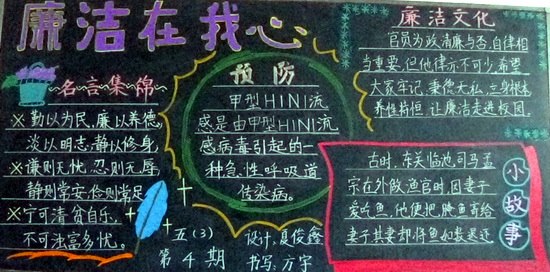 廉洁在我心
名言集锦
※勤以为民,廉以养德,
淡以明志,静以修身,
※谦则无忧,忍则无辱,
静则常安,俭则常足
※宁可清贫自乐,
不可浊富多忧。
预防
甲型H1N1流
感是由甲型H1N1流
感病毒引起的一
种急性呼吸道
传染病。
五(3)
第4期
设计:夏俊鑫
书写:方宇
廉洁文化
官员为政清廉与否,自律相
当重要,但他律亦不可少,希望
大家牢记,秉德无私,立身根本
养性持恒,让廉洁走进校园。
小故事
古时,东关临池司马孟
宗在外做渔官时,因妻子
爱吃鱼,他便把腌鱼寄给
妻子其妻却将鱼如数退还